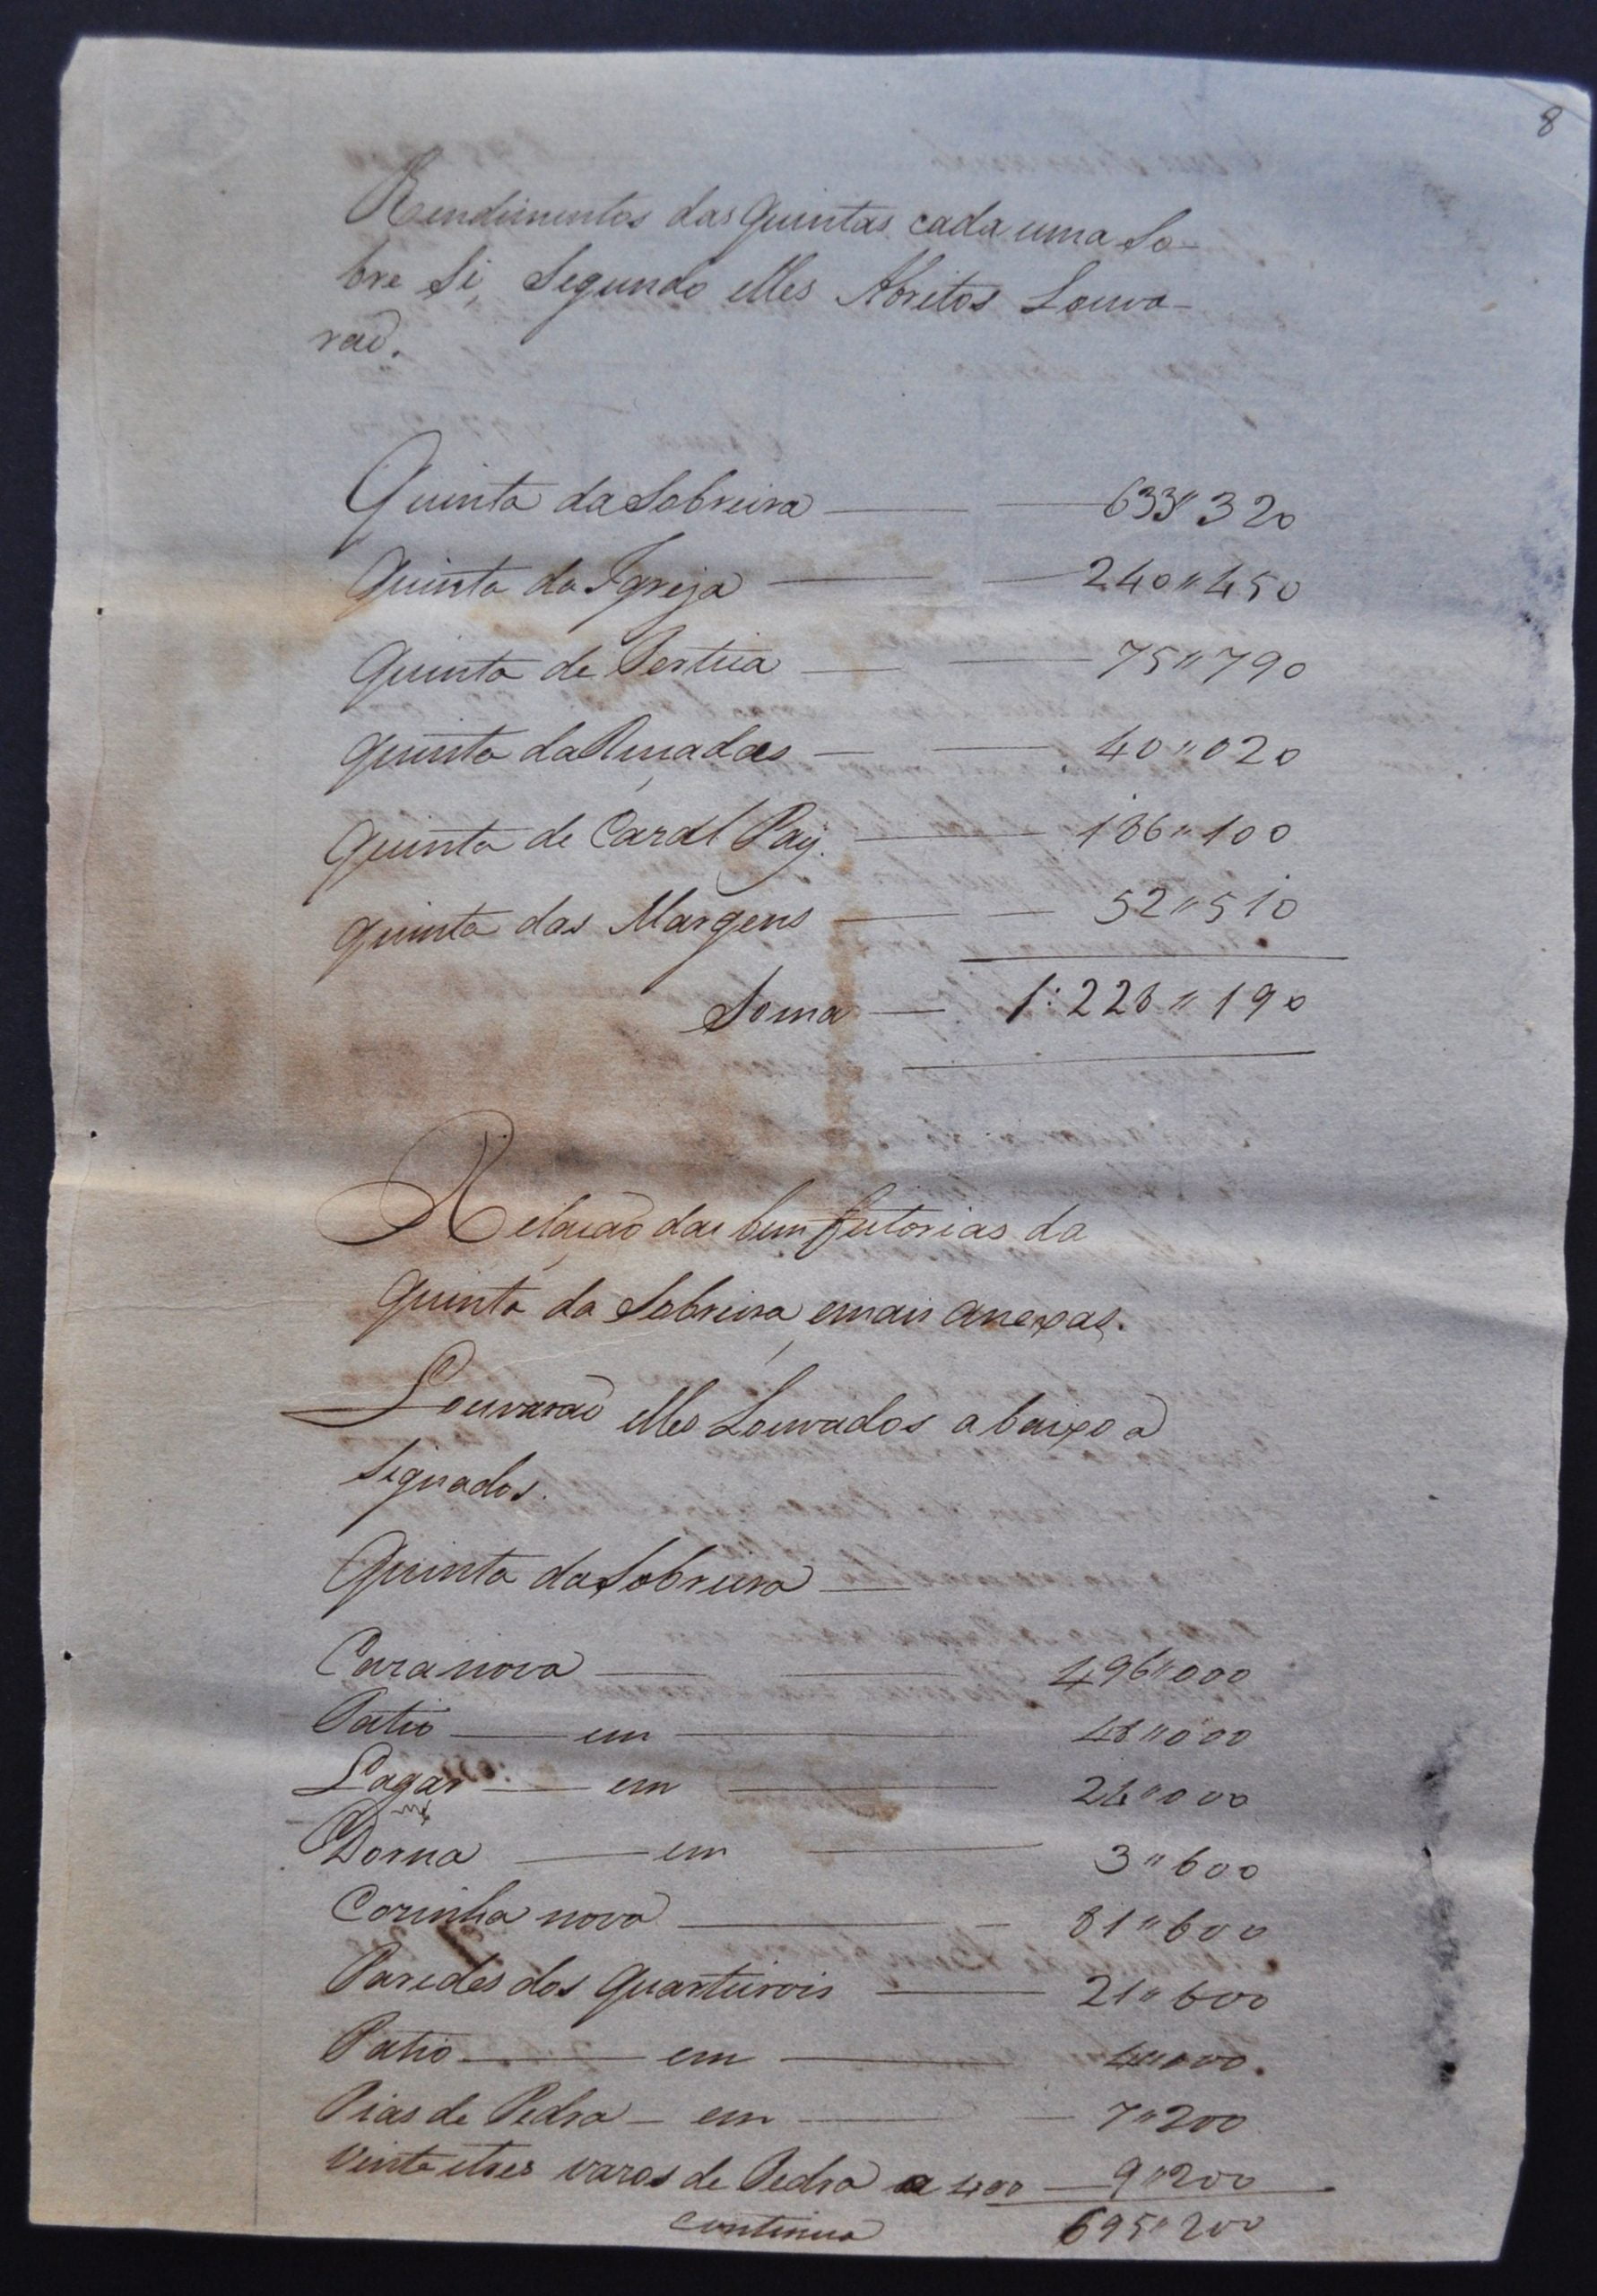 8
Rendimentos das Quintas cada uma So-
bre Si, Segundo elles Abritos Louva-
raõ.
Quinta da Sobreira — — 633"320
Quinta da Igreja — — 240"450
Quinta de — — 75"790
Quinta — — 40"020
Quinta de Caral Pay. — 186"100
Quinta das Margens — — 52"510
Soma — 1:228"190
Relaçaõ das bemfeitorias da
Quinta da Sobreira emais anexas.
Louvaraõ elles Louvados abaixo a
signados.
Quinta da Sobreira —
Caza nova — — 496"000
Patio — em — 48"000
Lagar — em — 24"000
Dorna — em — 3"600
Cozinha nova — - 81"600
Paredes dos Quarteirois — 21"600
Patio — em — 4"000.
Pias de Pedra — em — 7"200
Vinte etres varas de Pedra a 400 — 9"200
Continua 695"200